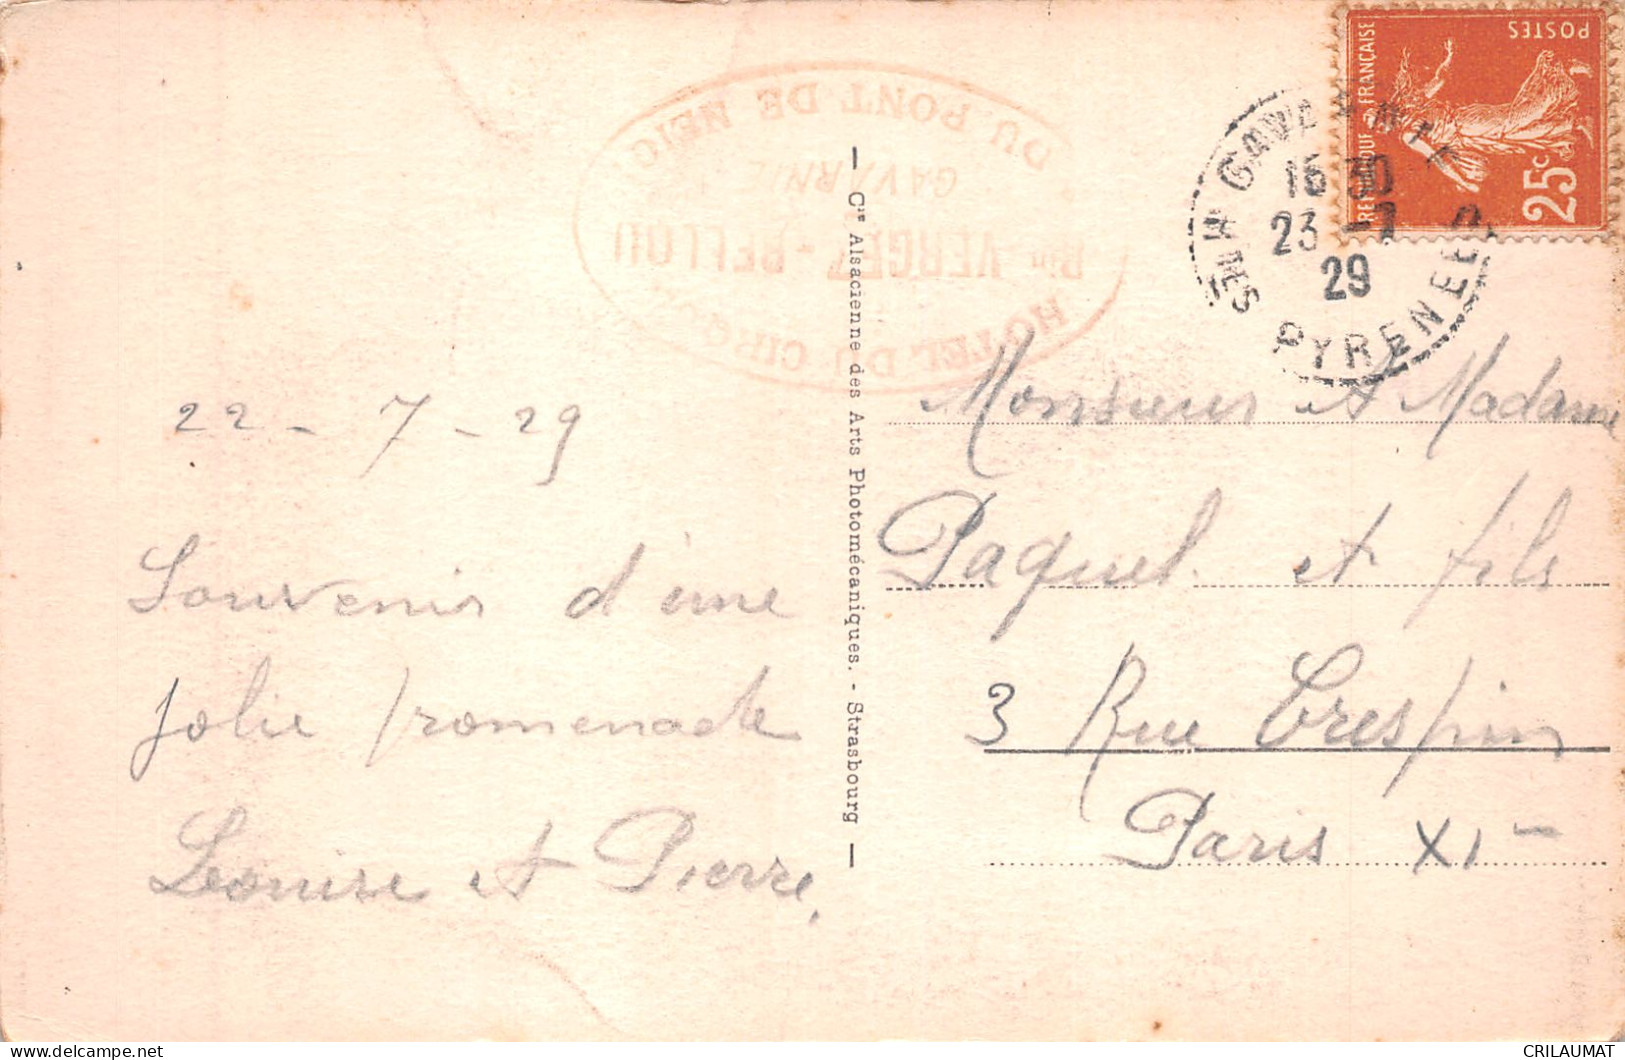 22 - 7 - 29
Souvenir d'une
jolie promenade
Louise et Pierre.
— Cie Alsacienne des Arts Photomécaniques. - Strasbourg —
HOTEL DU CIRQUE
VERGEZ-BELLOU
GAVARNIE
DU PONT DE NEIGE
POSTES
REPUBLIQUE FRANÇAISE
25c
GAVARNIE
16 30
23 -7
29
HTES PYRENEES
Monsieur et Madame
Paquel et fils
3 Rue Crespin
Paris XI
CRILAUMAT